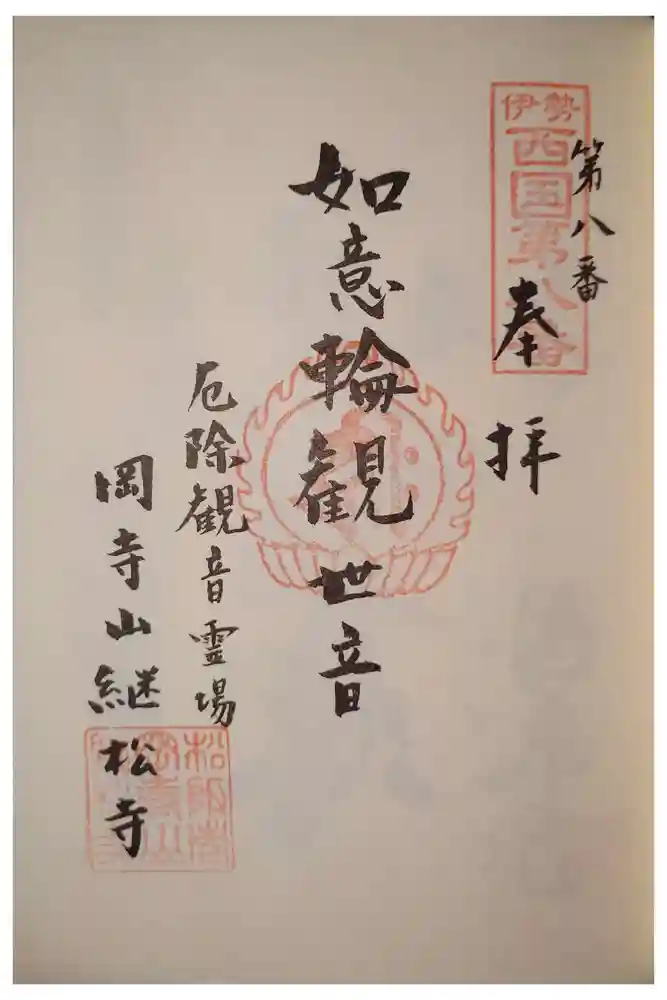 伊勢
西国第八番
第八番
奉拝
如意輪観世音
厄除観音霊場
岡寺山継松寺